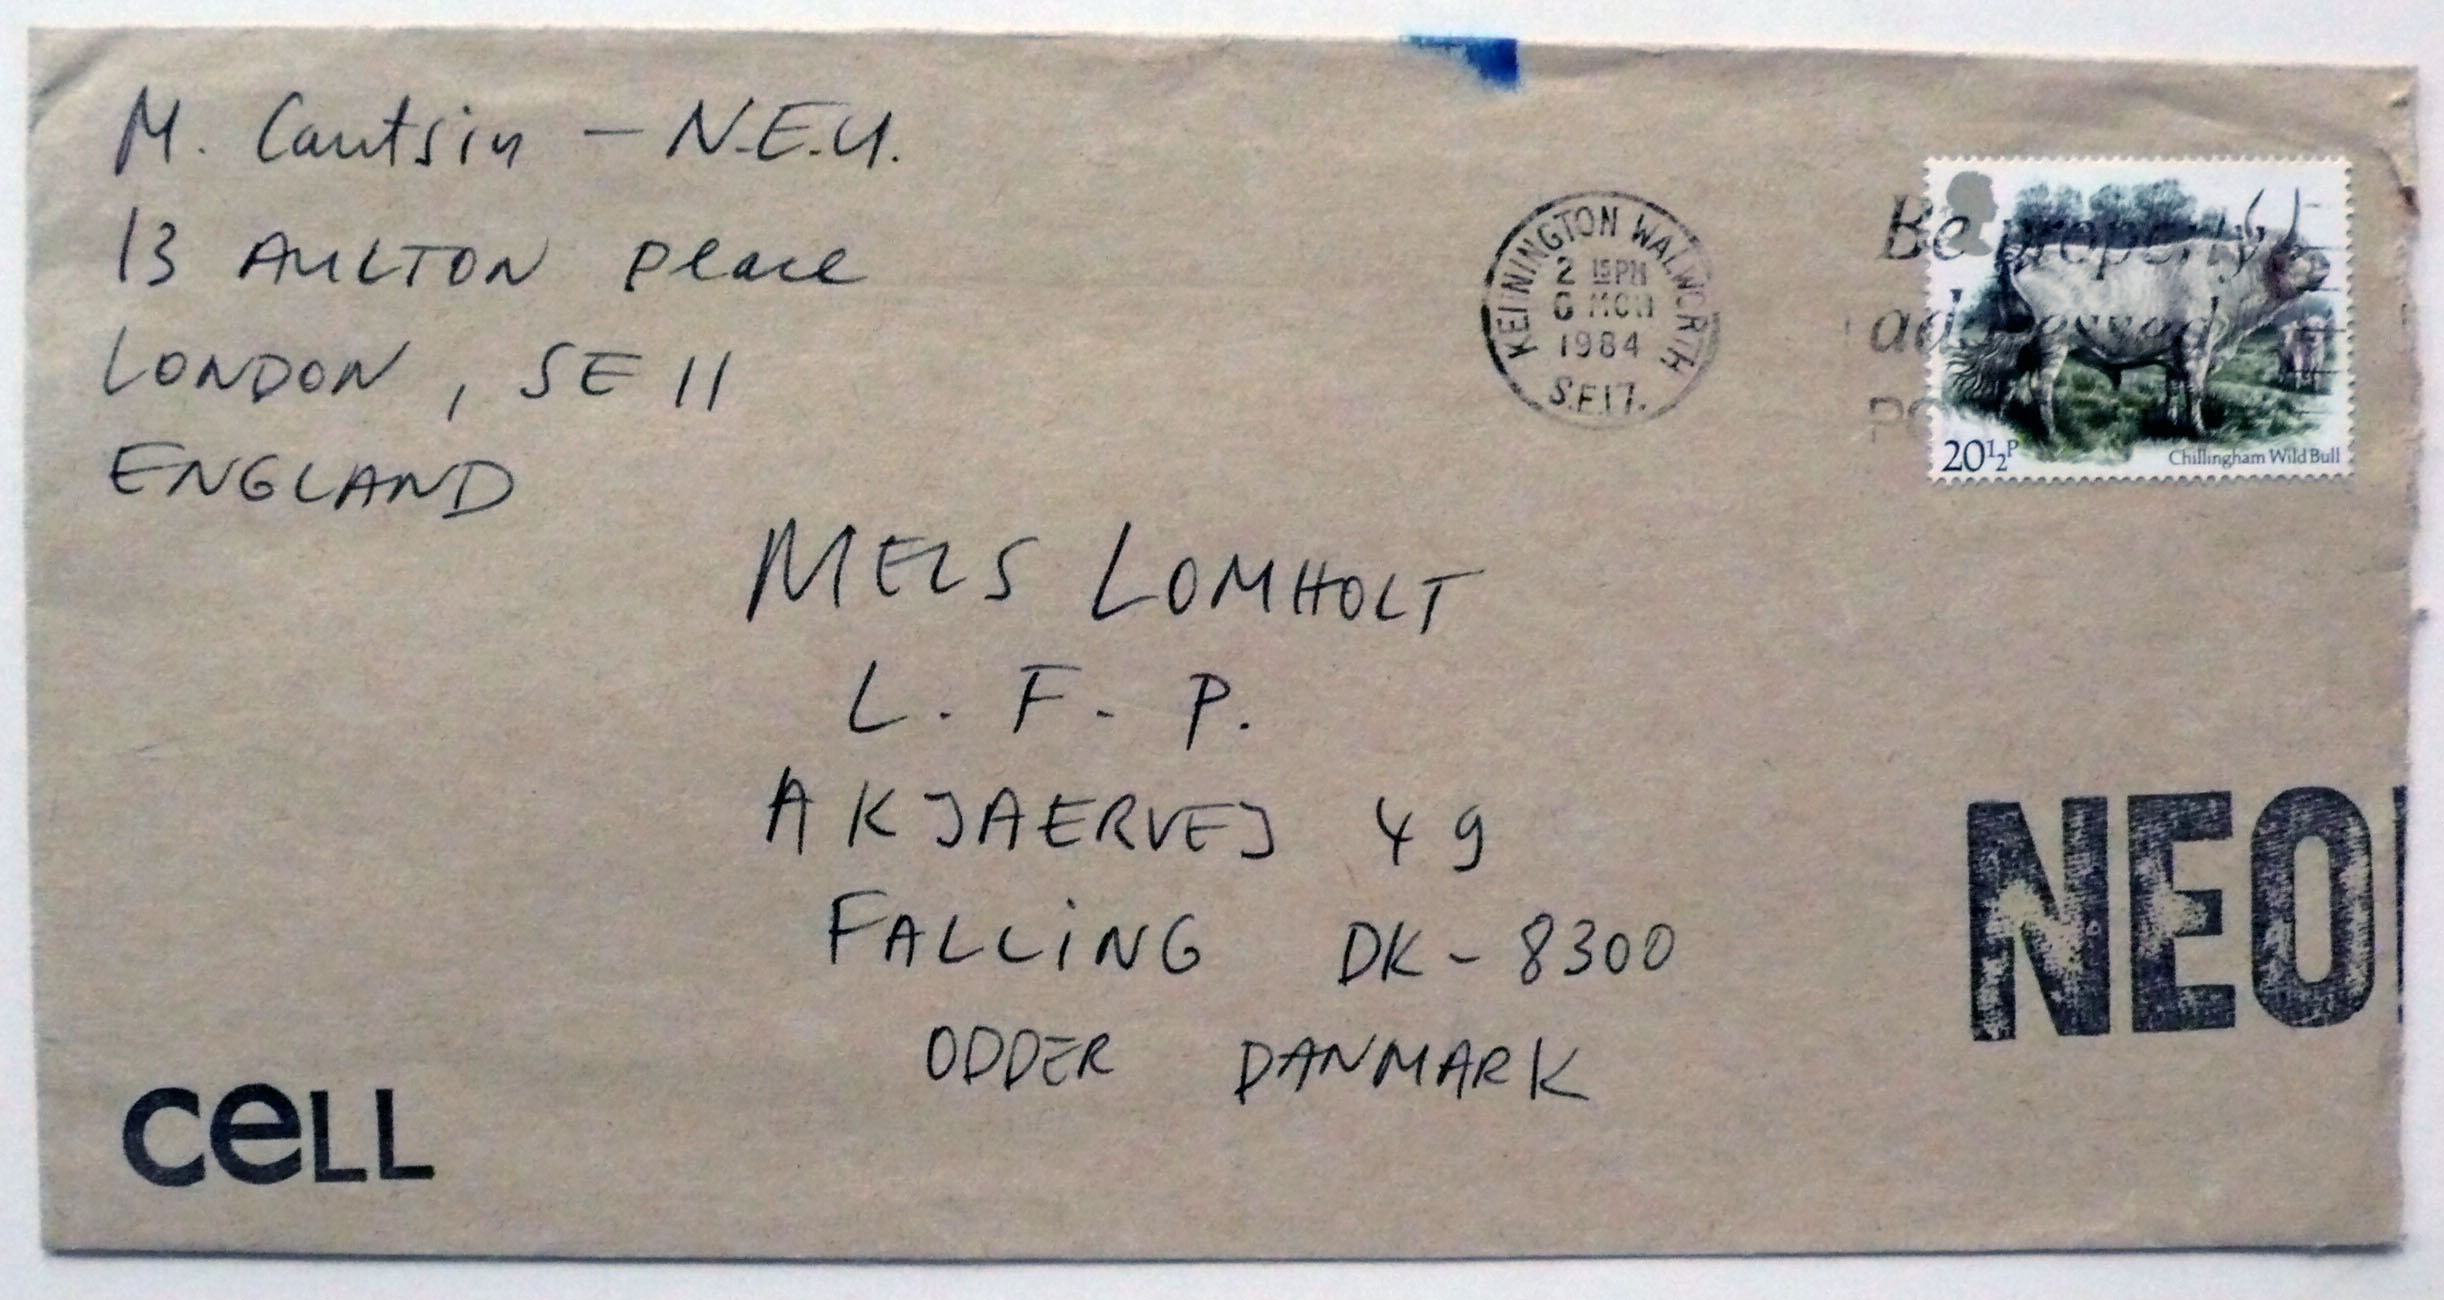 M. Cantsin — N.E.U.
13 AULTON place
LONDON, SE 11
ENGLAND
KENNINGTON WALWORTH
2 15PM
1984
S.E.17.
Be properly
addressed
20½P
Chillingham Wild Bull
MELS LOMHOLT
L. F. P.
AKJAERVEJ 49
FALLING DK-8300
ODDER DANMARK
NEO
CELL